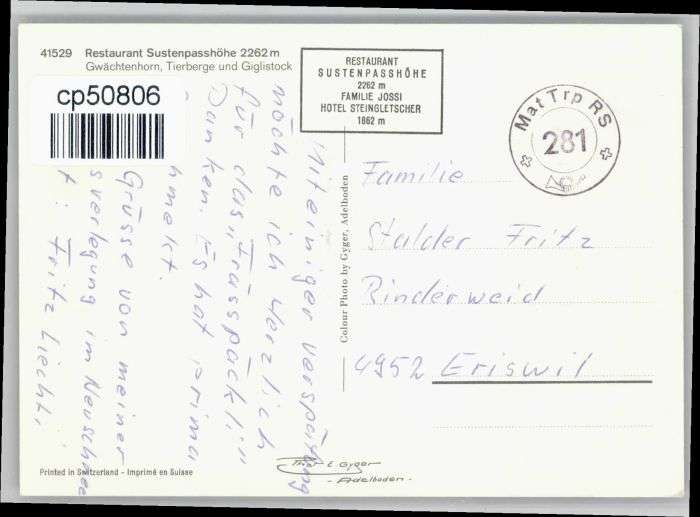 41529 Restaurant Sustenpasshöhe 2262 m
Gwächtenhorn, Tierberge und Giglistock
cp50806
RESTAURANT
SUSTENPASSHÖHE
2262 m
FAMILIE JOSSI
HOTEL STEINGLETSCHER
1862 m
Mat Trp RS
281
Mit einiger verspätung
möchte ich Herzlich
für das „Frässpäckli"
Danken. Es hat prima
Grüsse von meiner
sverlegung im Neuschnee
Fritz Liechti
Colour Photo by Gyger, Adelboden
Familie
Stalder Fritz
Rinderweid
4952 Eriswil
Printed in Switzerland - Imprimé en Suisse
Phot E. Gyger
- Adelboden -